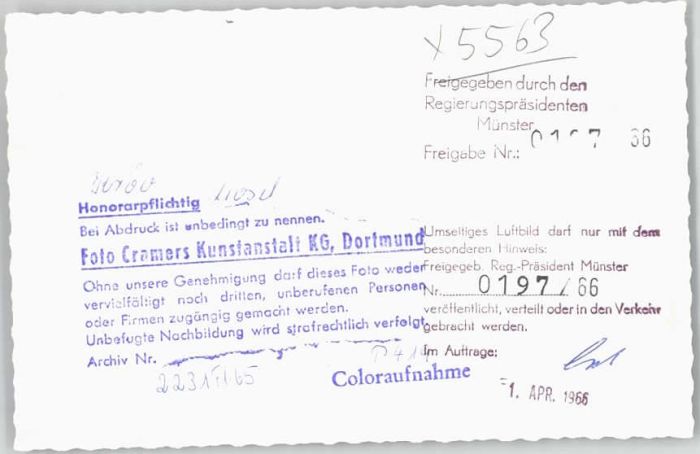 x5563
Freigegeben durch den
Regierungspräsidenten
Münster
Freigabe Nr.: 0197 66
Mosel
Honorarpflichtig
Bei Abdruck ist unbedingt zu nennen.
Foto Cramers Kunstanstalt KG, Dortmund
Ohne unsere Genehmigung darf dieses Foto weder
vervielfältigt noch dritten, unberufenen Personen
oder Firmen zugängig gemacht werden.
Unbefugte Nachbildung wird strafrechtlich verfolgt.
Archiv Nr.
Coloraufnahme
Umseitiges Luftbild darf nur mit dem
besonderen Hinweis:
Freigegeb. Reg.-Präsident Münster
Nr. 0197/66
veröffentlicht, verteilt oder in den Verkehr
gebracht werden.
Im Auftrage:
-1. APR. 1966